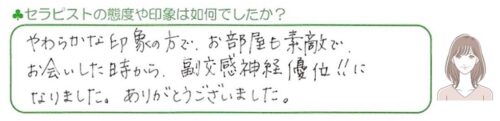 ♣セラピストの態度や印象は如何でしたか？
やわらかな印象の方で、お部屋も素敵で、
お会いした時から、副交感神経優位!!に
なりました。ありがとうございました。